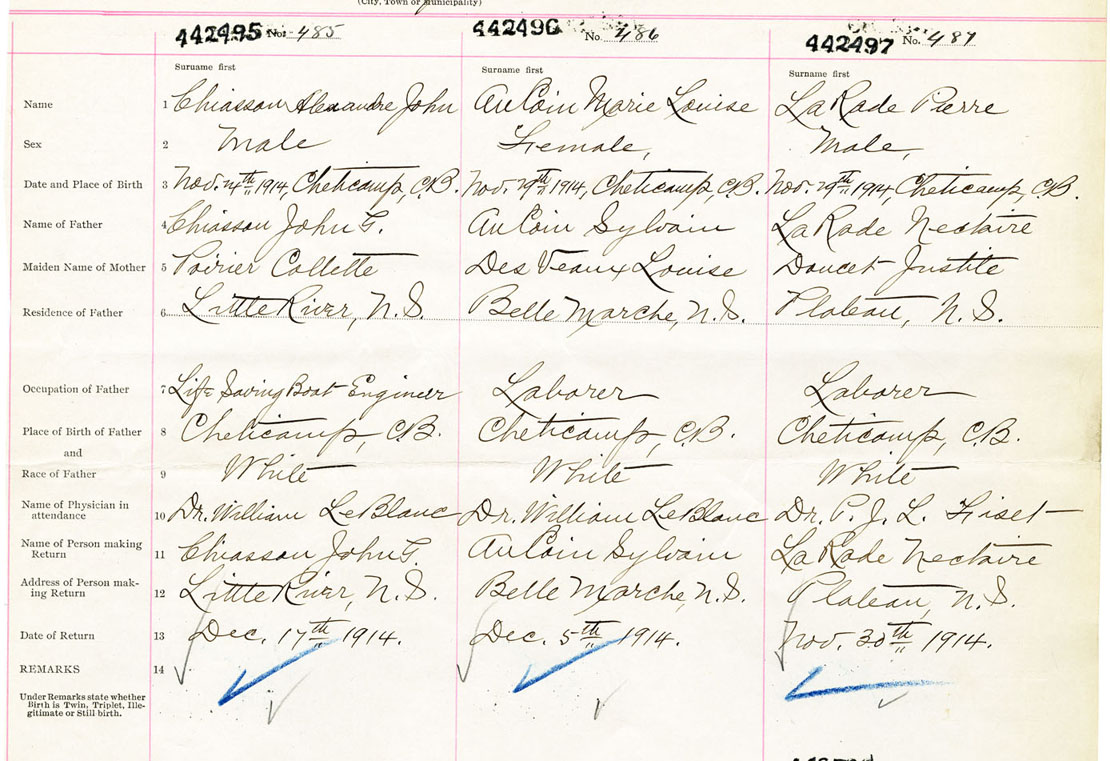 (City, Town or Municipality)
442495 No. 485 442496 No. 486 442497 No. 487
Surname first Surname first Surname first
Name 1 Chiasson Alexandre John AuCoin Marie Louise LaRade Pierre
Sex 2 Male Female, Male,
Date and Place of Birth 3 Nov. 4th 1914, Cheticamp, C.B. Nov. 29th 1914, Cheticamp, C.B. Nov. 29th 1914, Cheticamp, C.B.
Name of Father 4 Chiasson John G. AuCoin Sylvain LaRade Nectaire
Maiden Name of Mother 5 Poirier Collette DesVeaux Louise Doucet Justite
Residence of Father 6 Little River, N.S. Belle Marche, N.S. Plateau, N.S.
Occupation of Father 7 Life Saving Boat Engineer Laborer Laborer
Place of Birth of Father 8 Cheticamp, C.B. Cheticamp, C.B. Cheticamp, C.B.
and
Race of Father 9 White White White
Name of Physician in
attendance 10 Dr. William LeBlanc Dr. William LeBlanc Dr. P. J. L. Fiset
Name of Person making
Return 11 Chiasson John G. AuCoin Sylvain LaRade Nectaire
Address of Person mak-
ing Return 12 Little River, N.S. Belle Marche, N.S. Plateau, N.S.
Date of Return 13 Dec. 17th 1914. Dec. 5th 1914. Nov. 30th 1914.
REMARKS 14
Under Remarks state whether
Birth is Twin, Triplet, Ille-
gitimate or Still-birth.